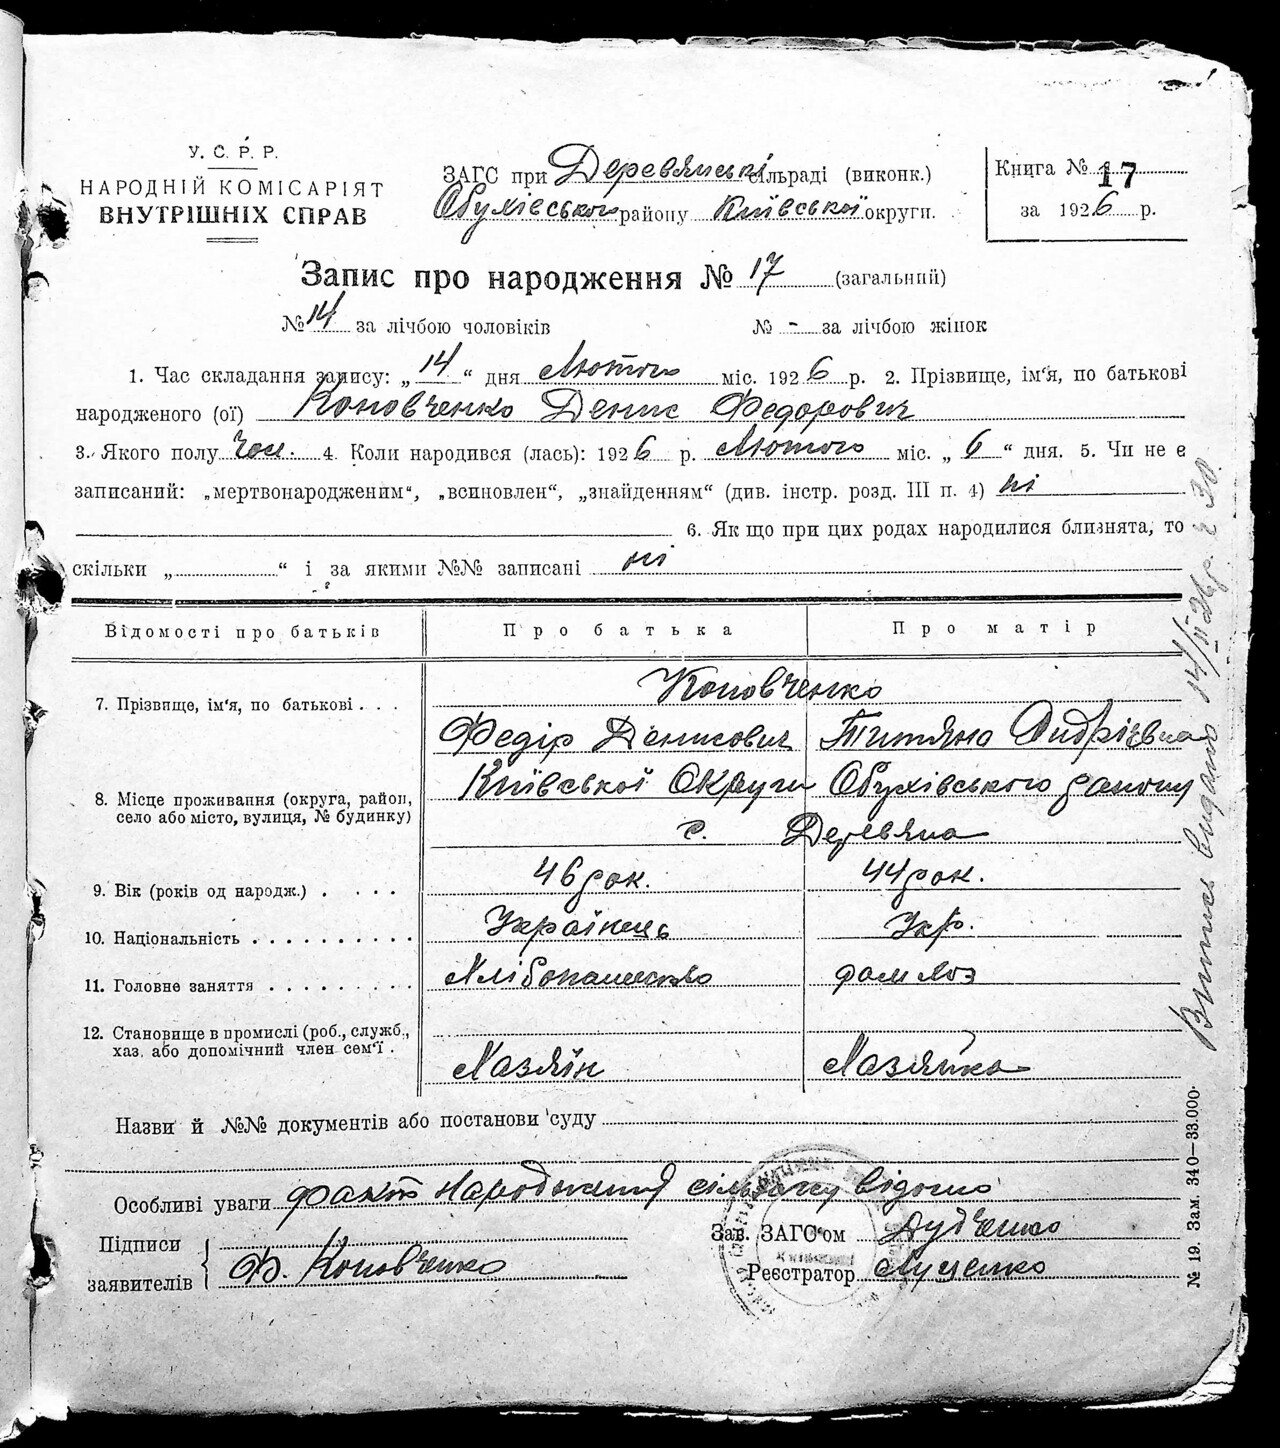 У. С. Р. Р.
НАРОДНІЙ КОМІСАРІЯТ
ВНУТРІШНІХ СПРАВ
ЗАГС при Деревянські сільраді (виконк.)
Обухівського району Київської округи.
Книга № 17
за 1926 р.
Запис про народження № 17 (загальний)
№ 14 за лічбою чоловіків № - за лічбою жінок
1. Час складання запису: „14“ дня Лютого міс. 1926 р. 2. Прізвище, ім‘я, по батькові
народженого (ої) Коновченко Денис Федорович
3. Якого полу чол. 4. Коли народився (лась): 1926 р. Лютого міс. „6“ дня. 5. Чи не є
записаний: „мертвонародженим“, „всиновлен“, „знайденням“ (див. інстр. розд. III п. 4) ні
6. Як що при цих родах народилися близнята, то
скільки „ “ і за якими №№ записані ні
Відомості про батьків Про батька Про матір
Коновченко
7. Прізвище, ім‘я, по батькові . . .
Федір Денисович Титяна Андріевна
Київської Округи Обухівського району
8. Місце проживання (округа, район,
село або місто, вулиця, № будинку)
с. Деревяна
9. Вік (років од народж.) . . . . 46 рок. 44 рок.
10. Національність . . . . . . . . . . Українець Укр.
11. Головне заняття . . . . . . . . . Хлібопашество дом хоз
12. Становище в промислі (роб., служб.,
хаз. або допомічний член сем‘ї .
Хазяїн Хазяйка
Назви й №№ документів або постанови суду
Особливі уваги факт народження сільраду відомо
Підписи
заявителів
Ф. Коновченко
Зав. ЗАГС‘ом Дудченко
Реєстратор Луценко
Випись видано 14/II 26р. 30.
№ 19. Зам. 340—33.000.